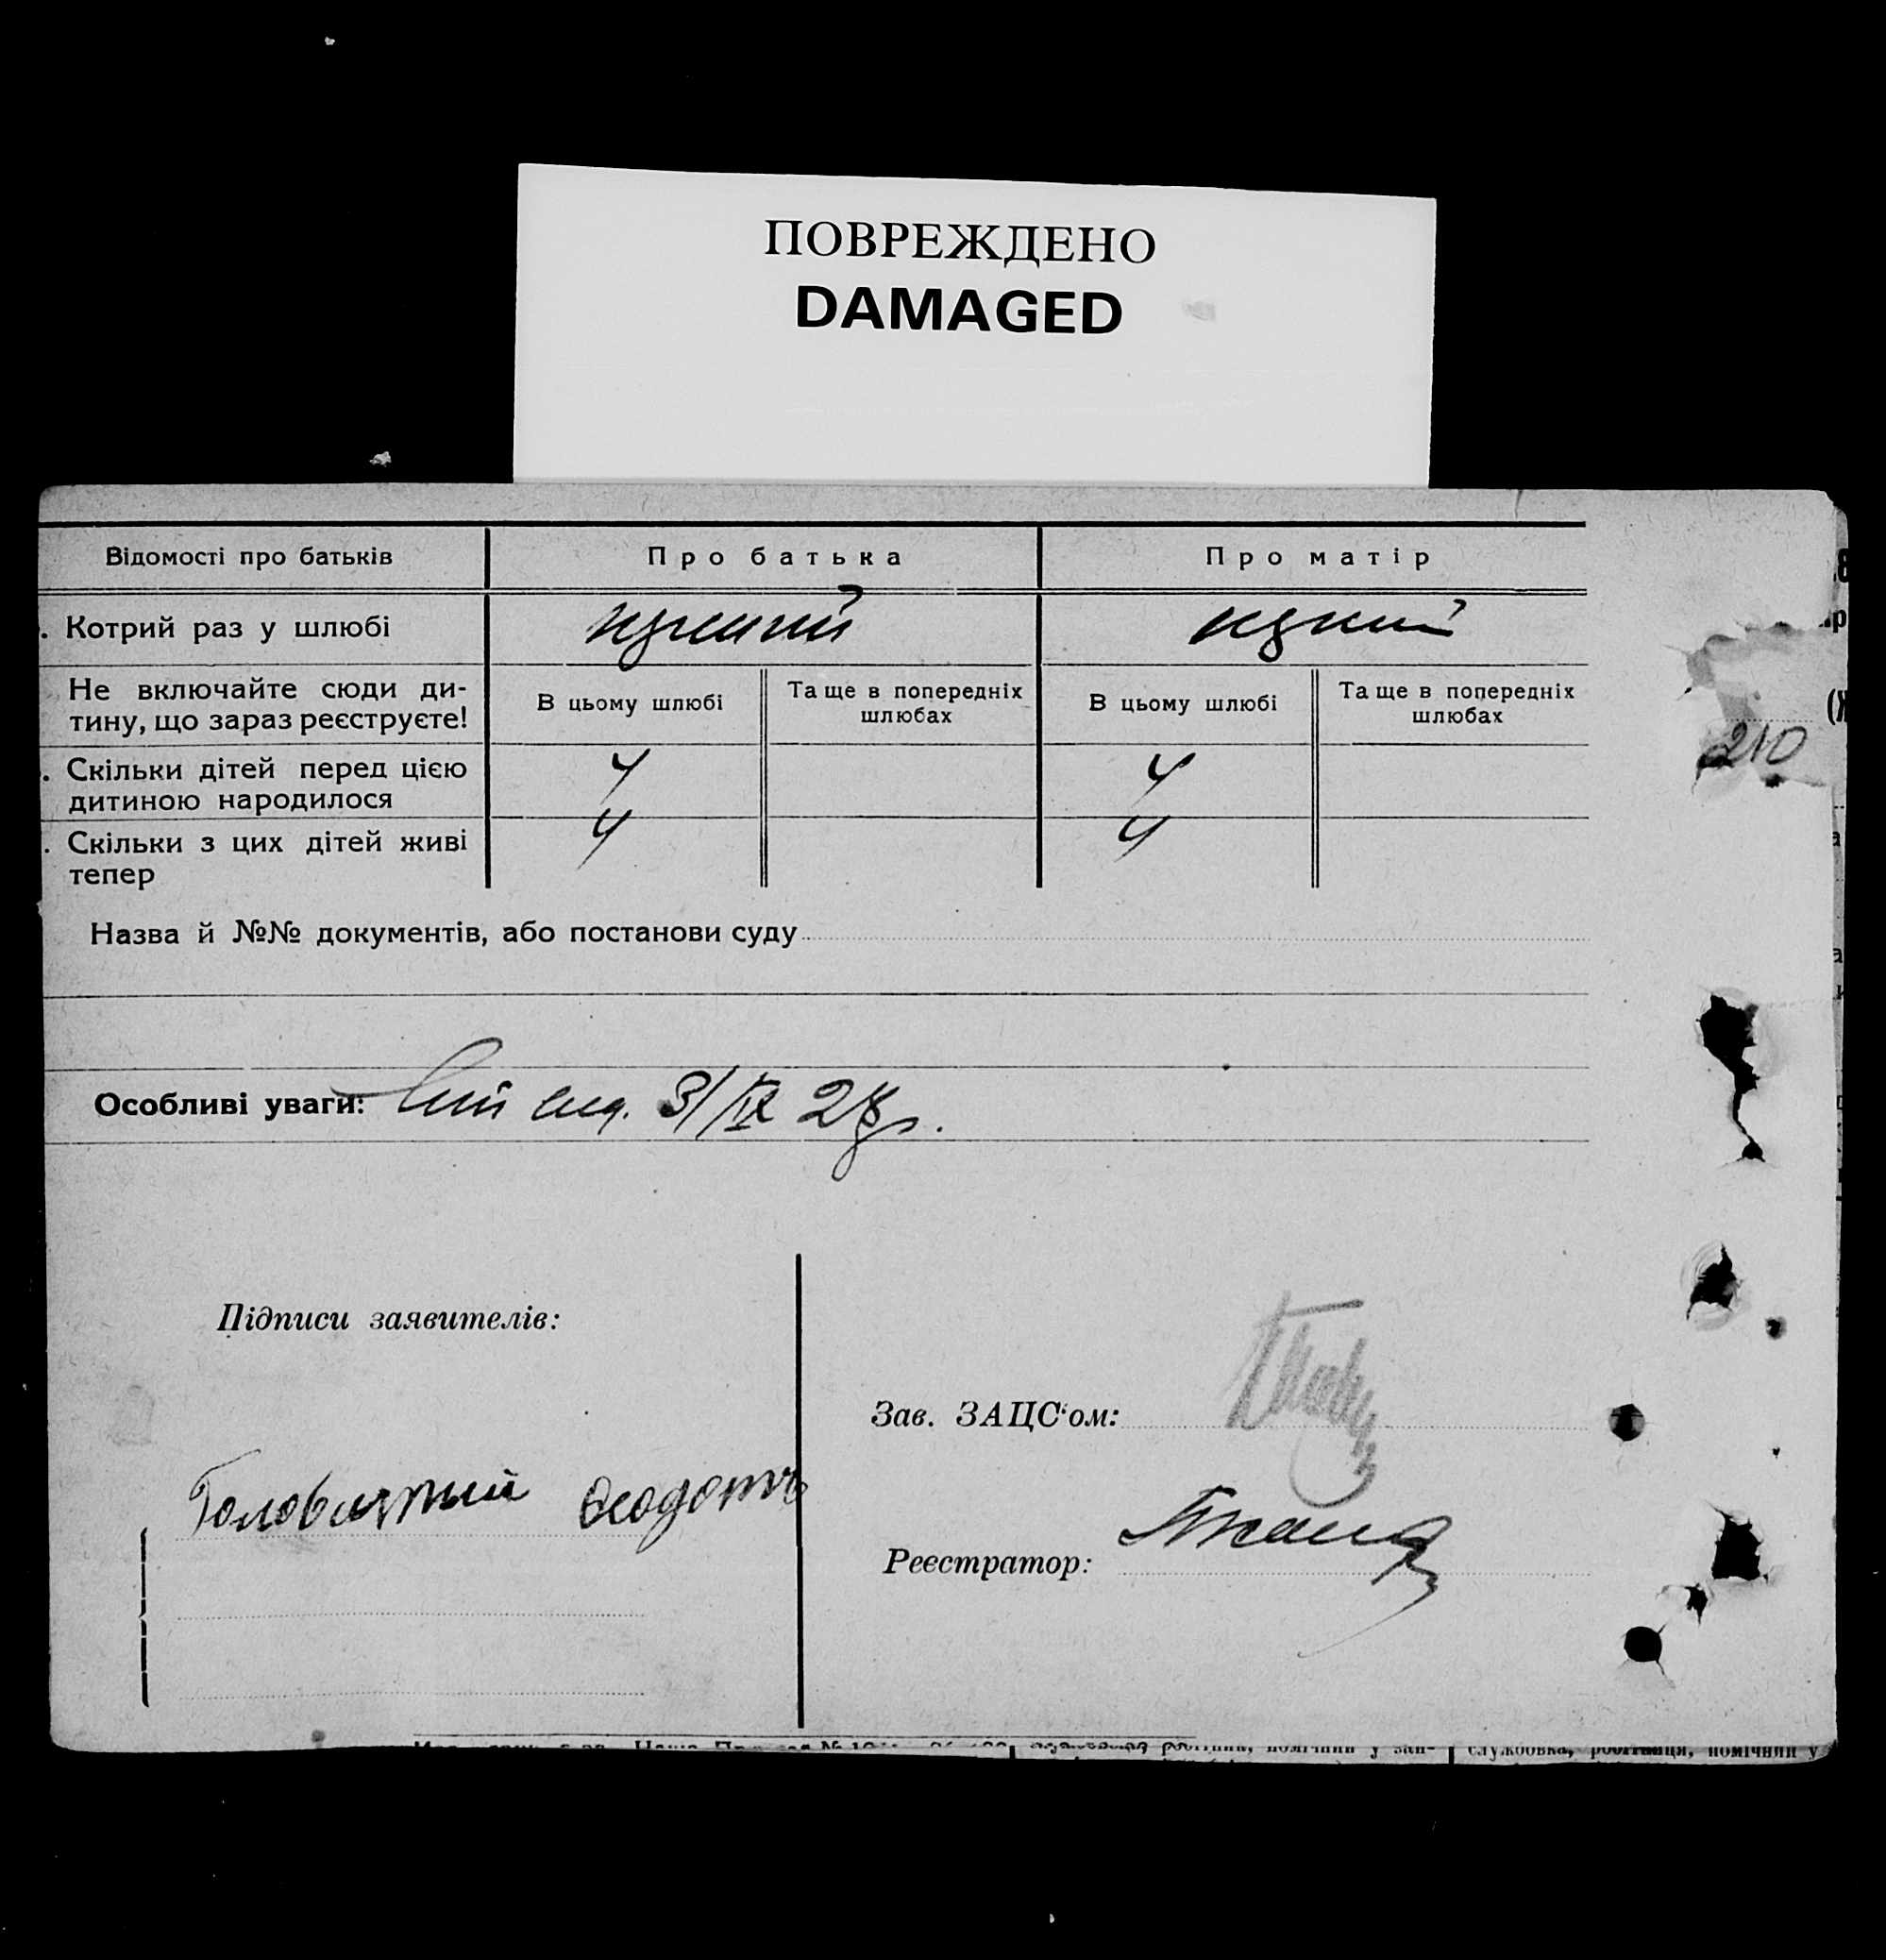 ПОВРЕЖДЕНО
DAMAGED
Відомості про батьків
Про батька
Про матір
. Котрий раз у шлюбі
Не включайте сюди ди-
тину, що зараз реєструєте!
В цьому шлюбі
Та ще в попередніх
шлюбах
В цьому шлюбі
Та ще в попередніх
шлюбах
210
. Скільки дітей перед цією
дитиною народилося
4
4
. Скільки з цих дітей живі
тепер
4
4
Назва й №№ документів, або постанови суду
Особливі уваги: 3/IX 27 р.
Підписи заявителів:
Зав. ЗАЦС'ом:
Головатый Феодотъ
Реєстратор:
службовка, робітниця, помічний у